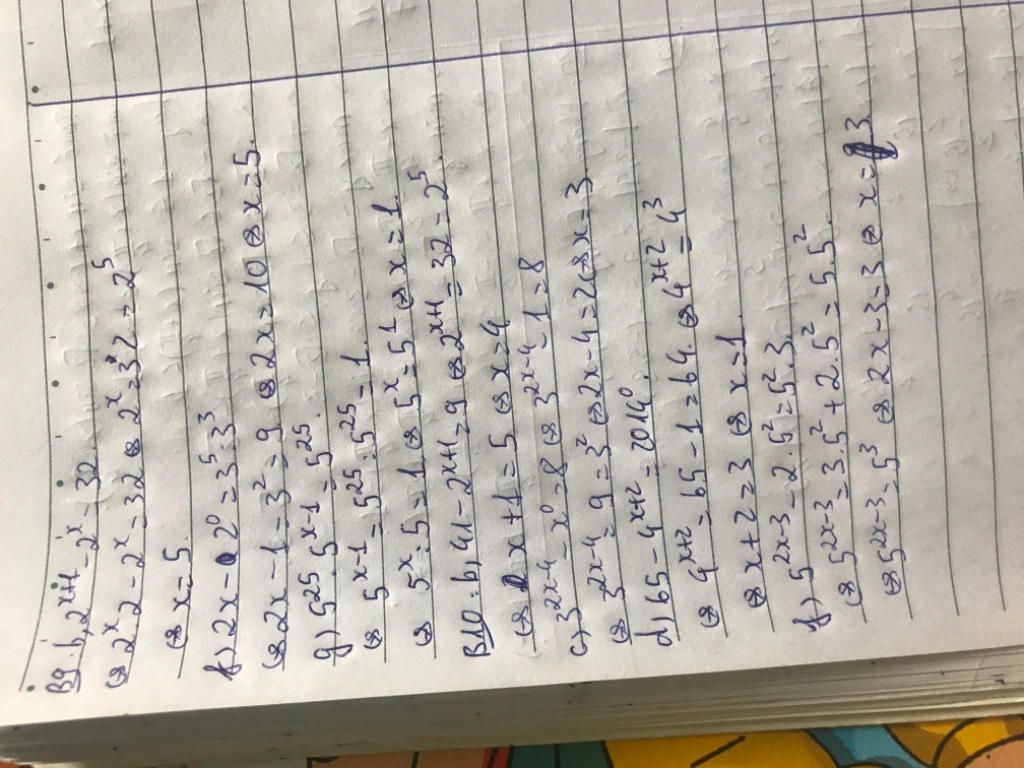 B9: b, 2^{x+1} - 2^x = 32.
⇔ 2^x.2 - 2^x = 32 ⇔ 2^x = 32 = 2^5
⇔ x = 5.
f) 2x - 2^0 = 3^5 : 3^3
⇔ 2x - 1 = 3^2 = 9 ⇔ 2x = 10 ⇔ x = 5.
g) 5^{25} . 5^{x-1} = 5^{25}.
⇔ 5^{x-1} = 5^{25} : 5^{25} = 1.
⇔ 5^x : 5 = 1 ⇔ 5^x = 5^1 ⇔ x = 1
B10: b, 41 - 2^{x+1} = 9 ⇔ 2^{x+1} = 32 = 2^5
⇔ x + 1 = 5 ⇔ x = 4
c) 3^{2x-4} - x^0 = 8 ⇔ 3^{2x-4} - 1 = 8
⇔ 3^{2x-4} = 9 = 3^2 ⇔ 2x - 4 = 2 ⇔ x = 3
d) 65 - 4^{x+2} = 2014^0.
⇔ 4^{x+2} = 65 - 1 = 64 ⇔ 4^{x+2} = 4^3
⇔ x + 2 = 3 ⇔ x = 1
f) 5^{2x-3} - 2.5^2 = 5^2.3.
⇔ 5^{2x-3} = 3.5^2 + 2.5^2 = 5.5^2
⇔ 5^{2x-3} = 5^3 ⇔ 2x - 3 = 3 ⇔ x = 3.